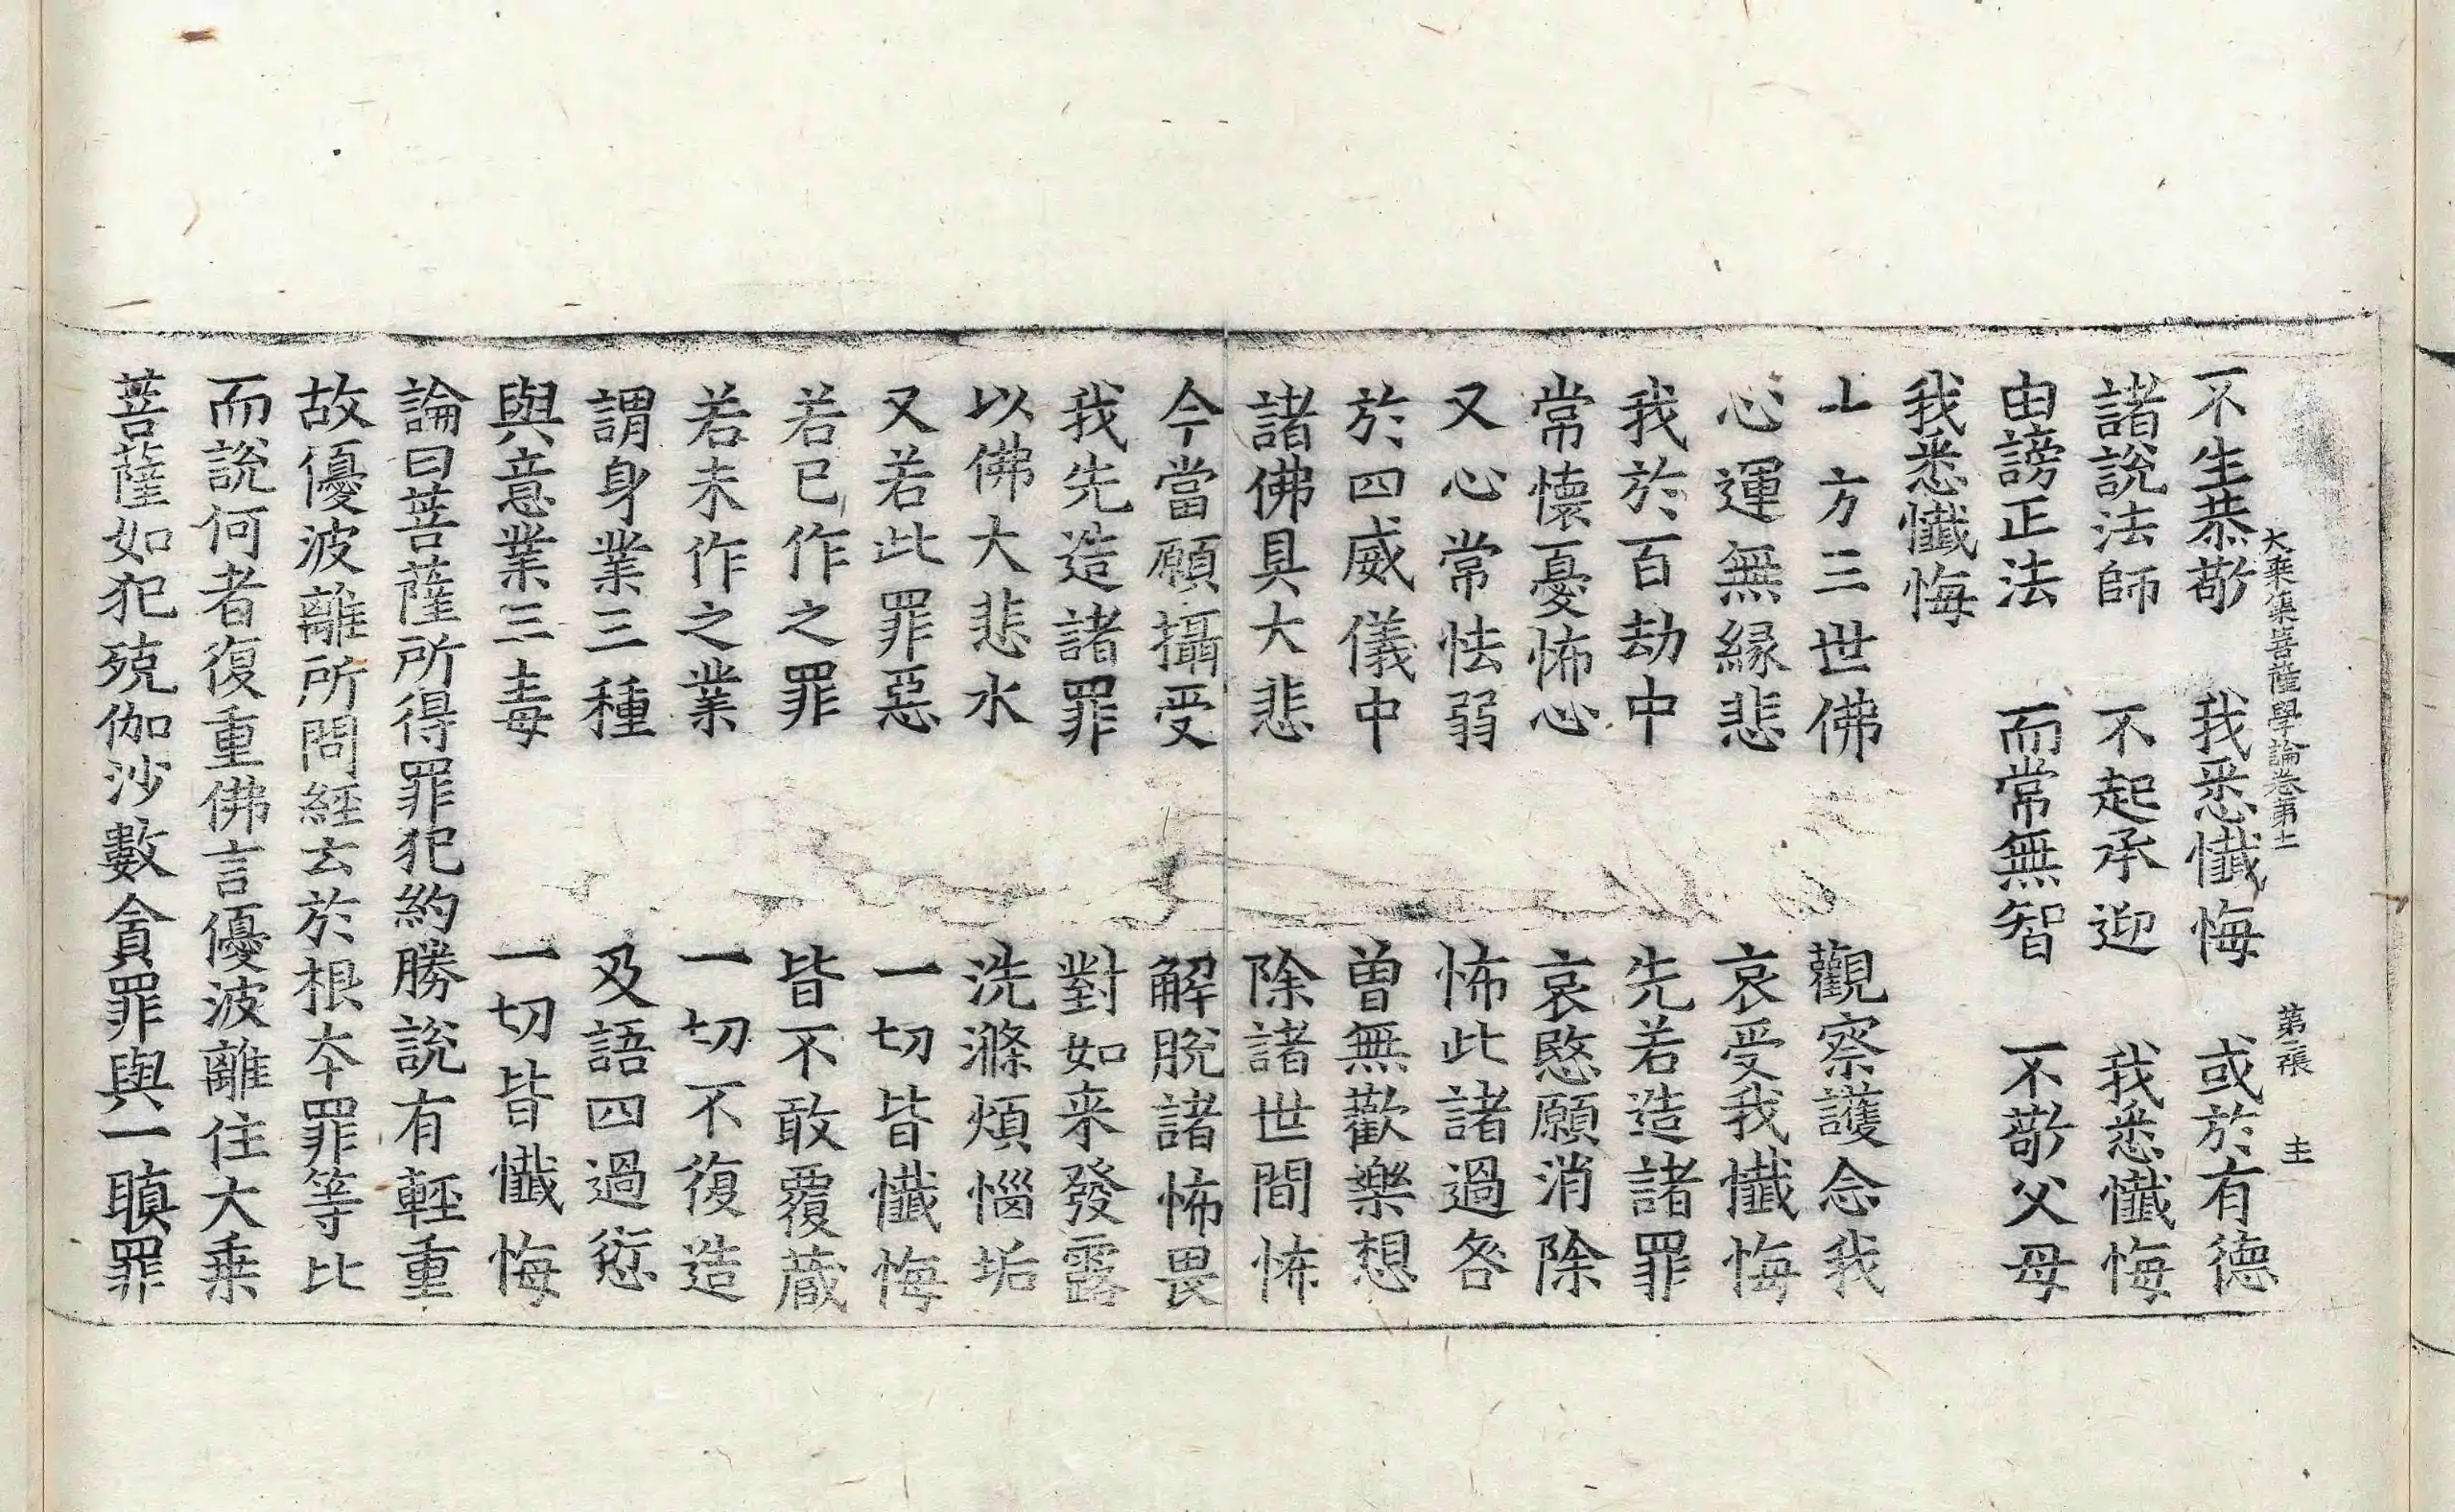 大乗集菩薩學論卷第十一 第二張 主
不生恭敬 我悉懺悔 或於有德
諸說法師 不起承迎 我悉懺悔
由謗正法 而常無智 不敬父母
我悉懺悔
十方三世佛 觀察護念我
心運無緣悲 哀受我懺悔
我於百劫中 先若造諸罪
常懷憂怖心 哀愍願消除
又心常怯弱 怖此諸過咎
於四威儀中 曽無歡樂想
諸佛具大悲 除諸世間怖
今當願攝受 解脫諸怖畏
我先造諸罪 對如来發露
以佛大悲水 洗滌煩惱垢
又若此罪惡 一切皆懺悔
若已作之罪 皆不敢覆藏
若未作之業 一切不復造
謂身業三種 及語四過愆
與意業三毒 一切皆懺悔
論曰菩薩所得罪犯約勝說有輕重
故優波離所問經云於根夲罪等比
而說何者復重佛言優波離住大乗
菩薩如犯殑伽沙數貪罪與一瞋罪